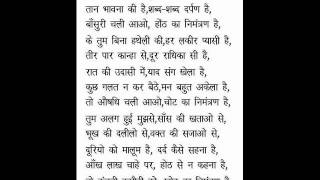 तान भावना की है,शब्द-शब्द दर्पण है,
बाँसुरी चली आओ, होंठ का निमंत्रण है,
के तुम बिना हथेली की,हर लकीर प्यासी है,
तीर पार कान्हा से,दूर राधिका सी है,
रात की उदासी में,याद संग खेला है,
कुछ गलत न कर बैठे,मन बहुत अकेला है,
तो औषधि चली आओ,चोट का निमंत्रण है,
तुम अलग हुई मुझसे,साँस की खताओ से,
भूख की दलीलो से,वक्त की सजाओ से,
दूरियो को मालूम है, दर्द कैसे सहना है,
आँख लाख चाहे पर, होठ से न कहना है,